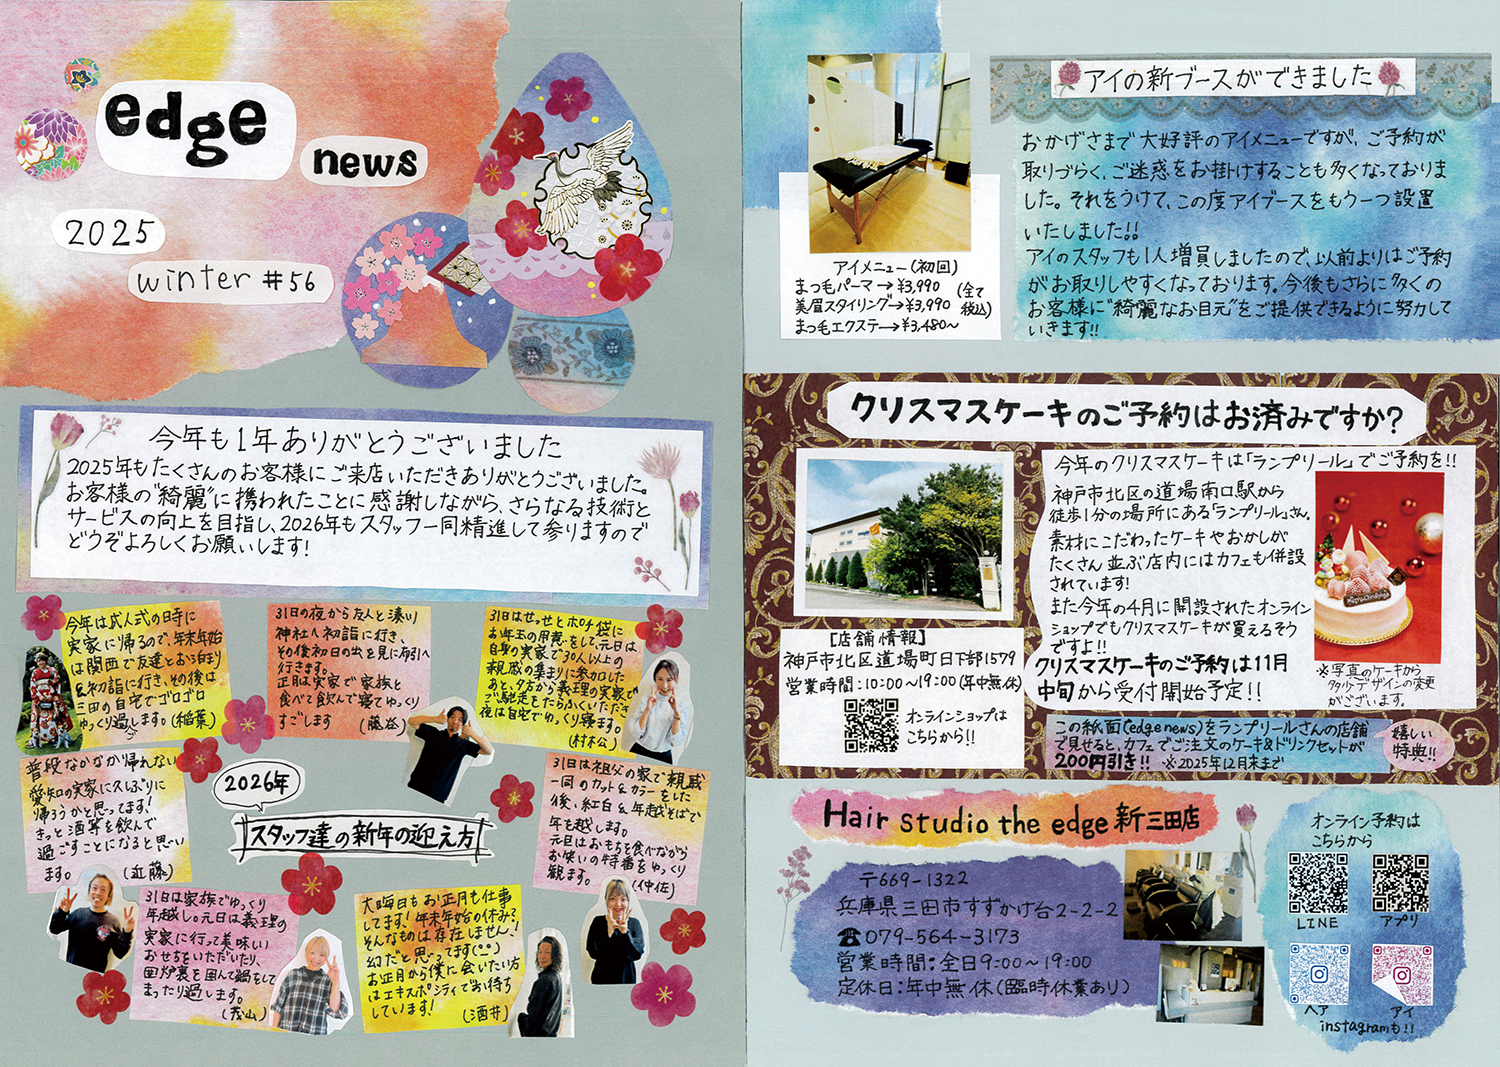 edge
news
2025
winter #56
今年も1年ありがとうございました
2025年もたくさんのお客様にご来店いただきありがとうございました。
お客様の"綺麗"に携われたことに感謝しながら、さらなる技術と
サービスの向上を目指し、2026年もスタッフ一同精進して参りますので
どうぞよろしくお願いします!
今年は成人式の時に
実家に帰るので、年末年始
は関西で友達とお泊まり
&初詣に行き、その後は
三田の自宅でゴロゴロ
ゆっくり過ごします。(稲葉)
31日の夜から友人と湊川
神社へ初詣に行き、
その後初日の出を見に布引へ
行きます。
正月は実家で家族と
食べて飲んで寝てゆっくり
すごします (藤谷)
31日はせっせとポチ袋に
お年玉の用意をして、元日は
自身の実家で30人以上の
親戚の集まりに参加した
あと、夕方から義理の実家で
ご馳走をたらふくいただき
夜は自宅でゆっくり寝ます。
(村松)
普段なかなか帰れない
愛知の実家に久しぶりに
帰ろうかと思ってます!
きっと酒等を飲んで
過ごすことになると思い
ます。 (近藤)
2026年
スタッフ達の新年の迎え方
31日は祖父の家で親戚
一同のカット&カラーをした
後、紅白&年越そばで
年を越します。
元旦はおもちを食べながら
お笑いの特番をゆっくり
観ます。 (仲佐)
31日は家族でゆっくり
年越し。元日は義理の
実家に行って美味しい
おせちをいただいたり、
囲炉裏を囲んで鍋をして
まったり過します。
(茂山)
大晦日もお正月も仕事
してます!年末年始の休み?
そんなものは存在しません!
幻だと思ってます(^^)
お正月から僕に会いたい方
はエキスポシティでお待ち
しています! (酒井)
アイの新ブースができました
おかげさまで大好評のアイメニューですが、ご予約が
取りづらく、ご迷惑をお掛けすることも多くなっておりま
した。それをうけて、この度アイブースをもう一つ設置
いたしました!!
アイのスタッフも1人増員しましたので、以前よりはご予約
がお取りしやすくなっております。今後もさらに多くの
お客様に"綺麗なお目元"をご提供できるように努力して
いきます!!
アイメニュー(初回)
まつ毛パーマ→¥3,990
美眉スタイリング→¥3,990
まつ毛エクステ→¥3,480~
(全て
税込)
クリスマスケーキのご予約はお済みですか?
今年のクリスマスケーキは「ランプリール」でご予約を!!
神戸市北区の道場南口駅から
徒歩1分の場所にある「ランプリール」さん。
素材にこだわったケーキやおかしが
たくさん並ぶ店内にはカフェも併設
されています!
また今年の4月に開設されたオンライン
ショップでもクリスマスケーキが買えるそう
ですよ!!
クリスマスケーキのご予約は11月
中旬から受付開始予定!!
※写真のケーキから
多少デザインの変更
がございます。
【店舗情報】
神戸市北区道場町日下部1579
営業時間:10:00~19:00(年中無休)
オンラインショップは
こちらから!!
この紙面(edge news)をランプリールさんの店舗
で見せると、カフェでご注文のケーキ&ドリンクセットが
200円引き!! ※2025年12月末まで
嬉しい
特典!!
Hair studio the edge 新三田店
〒669-1322
兵庫県三田市すずかけ台2-2-2
☎079-564-3173
営業時間:全日9:00~19:00
定休日:年中無休(臨時休業あり)
オンライン予約は
こちらから
LINE
アプリ
ヘア
アイ
instagramも!!